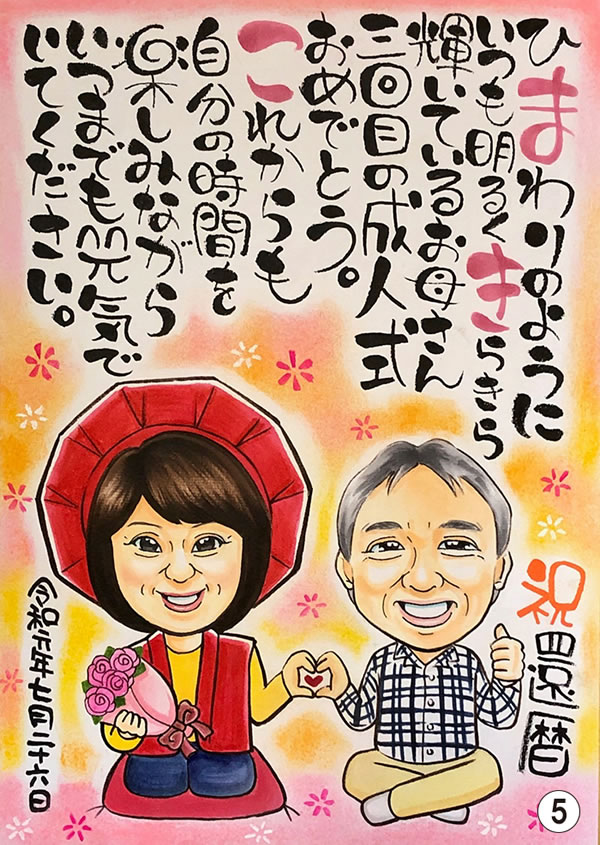 ひまわりのように
いつも明るくきらきら
輝いているお母さん
三回目の成人式
おめでとう。
これからも
自分の時間を
楽しみながら
いつまでも元気で
いてください。
祝
還暦
令和六年七月二十六日
5